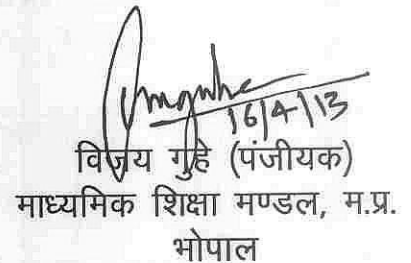 16/4/13
विजय गुहे (पंजीयक)
माध्यमिक शिक्षा मण्डल, म.प्र.
भोपाल